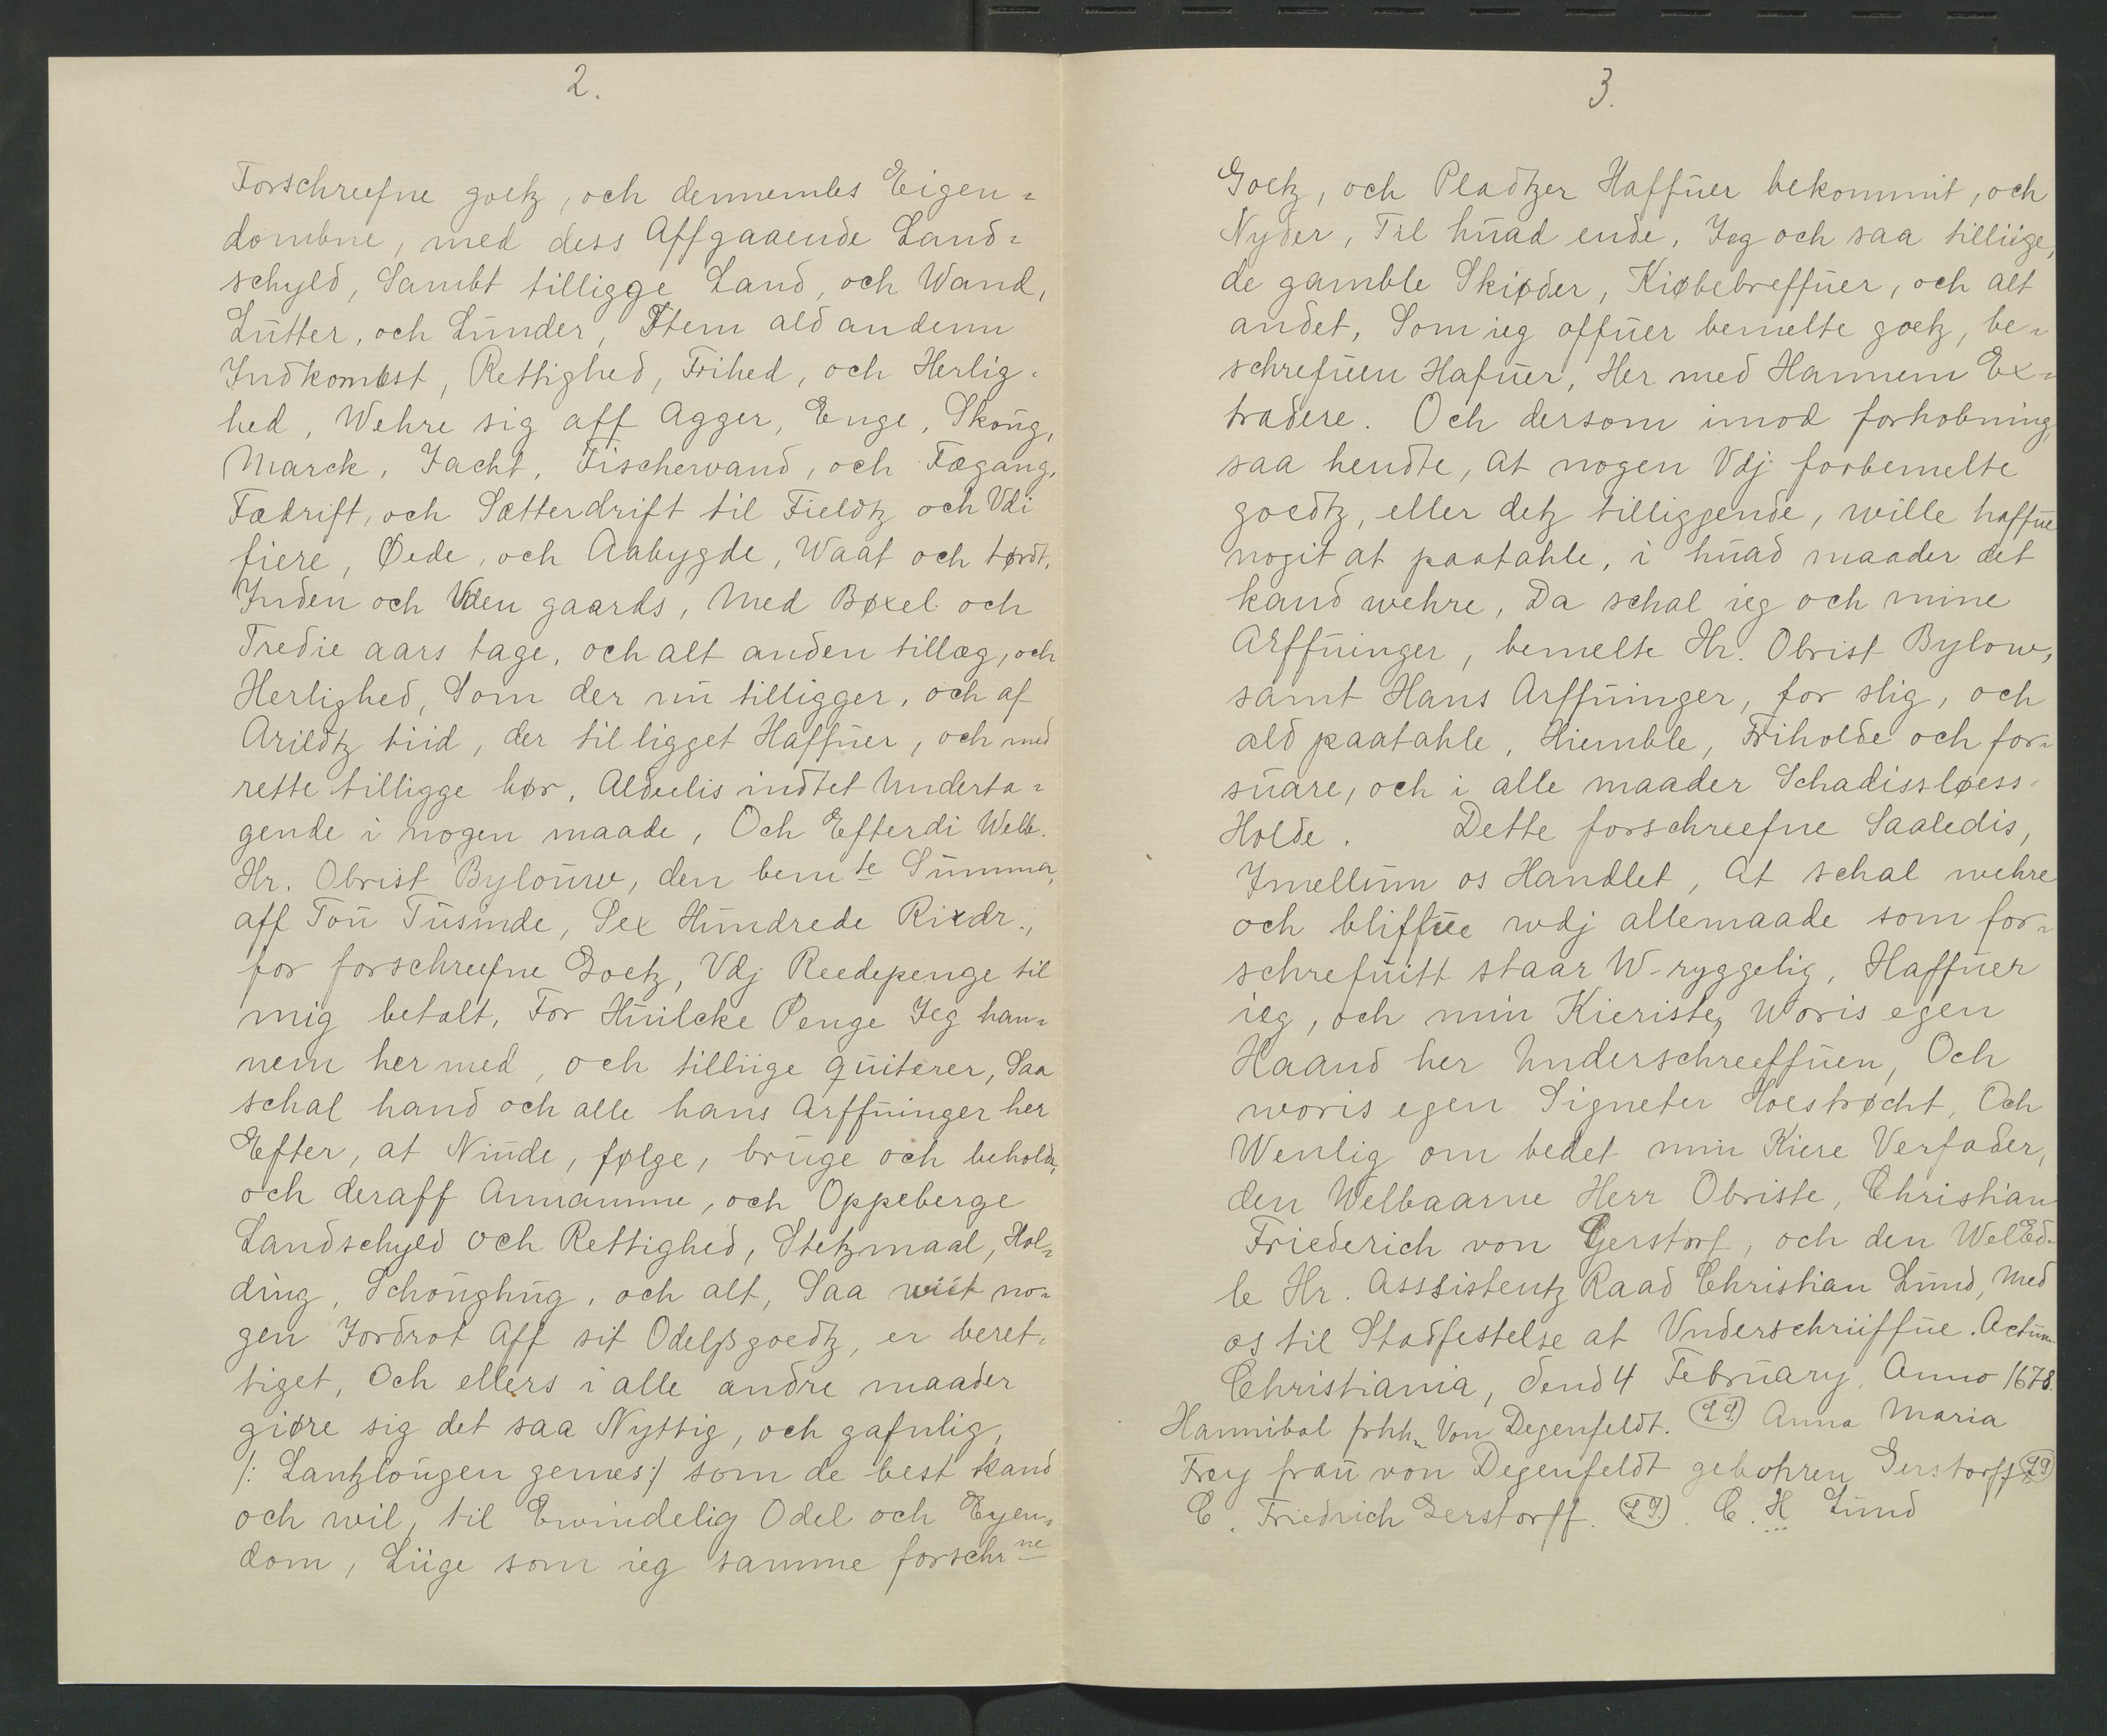 2.
Forschreefne goetz, och dennembes Eigen=
dombne, med dess Affgaaende Land=
schyld, Sambt tilligge Land, och Wand,
Lŭtter, och Lŭnder, Item ald andenn
Indkombst, Rettighed, Frihed, och Herlig=
hed, Wehre sig aff Agger, Enge, Skoŭg,
Marck, Jacht, Fischervand, och Fægang,
Fædrift, och Sætterdrift til Fieldtz och Vdi
fiere, Øede, och Aabygde, Waat och tørdt,
Inden och Uden gaards, Med Bøxel och
Tredie aars tage, och alt anden tillæg, och
Herlighed, Som der nŭ tilligger, och af
Arildtz tiid, der til ligget Haffŭer, och med
rette tilligge bør, Aldeelis indtet Underta=
gende i nogen maade, Och Efterdi Welb.
Hr. Obrist Byloŭw, den bemte Sŭmma,
aff Toŭ Tŭsinde, Sex Hŭndrede Rixdr.,
for forschreefne Goetz, Vdj Reedepenge til
mig betalt, For Hŭilcke Penge Jeg han=
nem her med, och tilliige qŭiterer, Saa
schal hand och alle hans Arffŭinger her
Efter, at Niŭde, følge, brŭge och beholde,
och deraff Annamme, och Oppeberge
Landschyld och Rettighed, Stetzmaal, Hol=
ding, Schoŭghŭg, och alt, Saa wiit no=
gen Jordrot Aff sit Odelßgoedtz, er beret=
tiget, Och ellers i alle andre maader
giøre sig det saa Nyttig, och gafnlig,
/: Lantzloŭgen gemes:/ som de best kand
och wil, til Ewindelig Odel och Eyen=
dom, Liige som ieg samme forschrne
3.
Goetz, och Pladtzer Haffŭer bekommit, och
Nyder, Til hŭad ende, Jeg och saa tilliige,
de gamble Skiøder, Kiøbebreffŭer, och alt
andet, Som ieg offŭer bemelte goetz, be=
schrefŭen Hafŭer, Her med Hannem Ex=
tradere. Och dersom imod forhobning,
saa hendte, at nogen Vdj forbemelte
goedtz, eller detz tilliggende, wille haffŭe
nogit at paatahle, i hŭad maader det
kand wehre, Da schal ieg och mine
Arffŭinger, bemelte Hr. Obrist Bylow,
samt Hans Arffŭinger, for slig, och
ald paatahle, Hiemble, Friholde och for=
sŭare, och i alle maader Schadissløess=
Holde. Dette forschreefne Saaledis,
Imellŭm os Handlet, At schal wehre
och bliffŭe wdj allemaade som for=
schrefŭitt staar W-ryggelig, Haffŭer
ieg, och min Kieriste, Woris egen
Haand her Underschreeffŭen, Och
woris egen Signeter Hoestrøcht, Och
Wenlig om bedet min Kiere Verfader,
den Welbaarne Herr Obriste, Christian
Friederich von Gerstorf, och den WelEd=
le Hr. Asssistentz Raad Christian Lŭnd, Med
os til Stadfestelse at Vnderschriiffŭe. Actŭm
Christiania, dend 4 Febrŭary, Anno 1678.
Hannibal frhh Von Degenfeldt. (LS) Anna Maria
Frey fraŭ von Degenfeldt gebohren Gerstorff (LS)
C. Friedrich Gerstorff. (LS). C. H Lŭnd